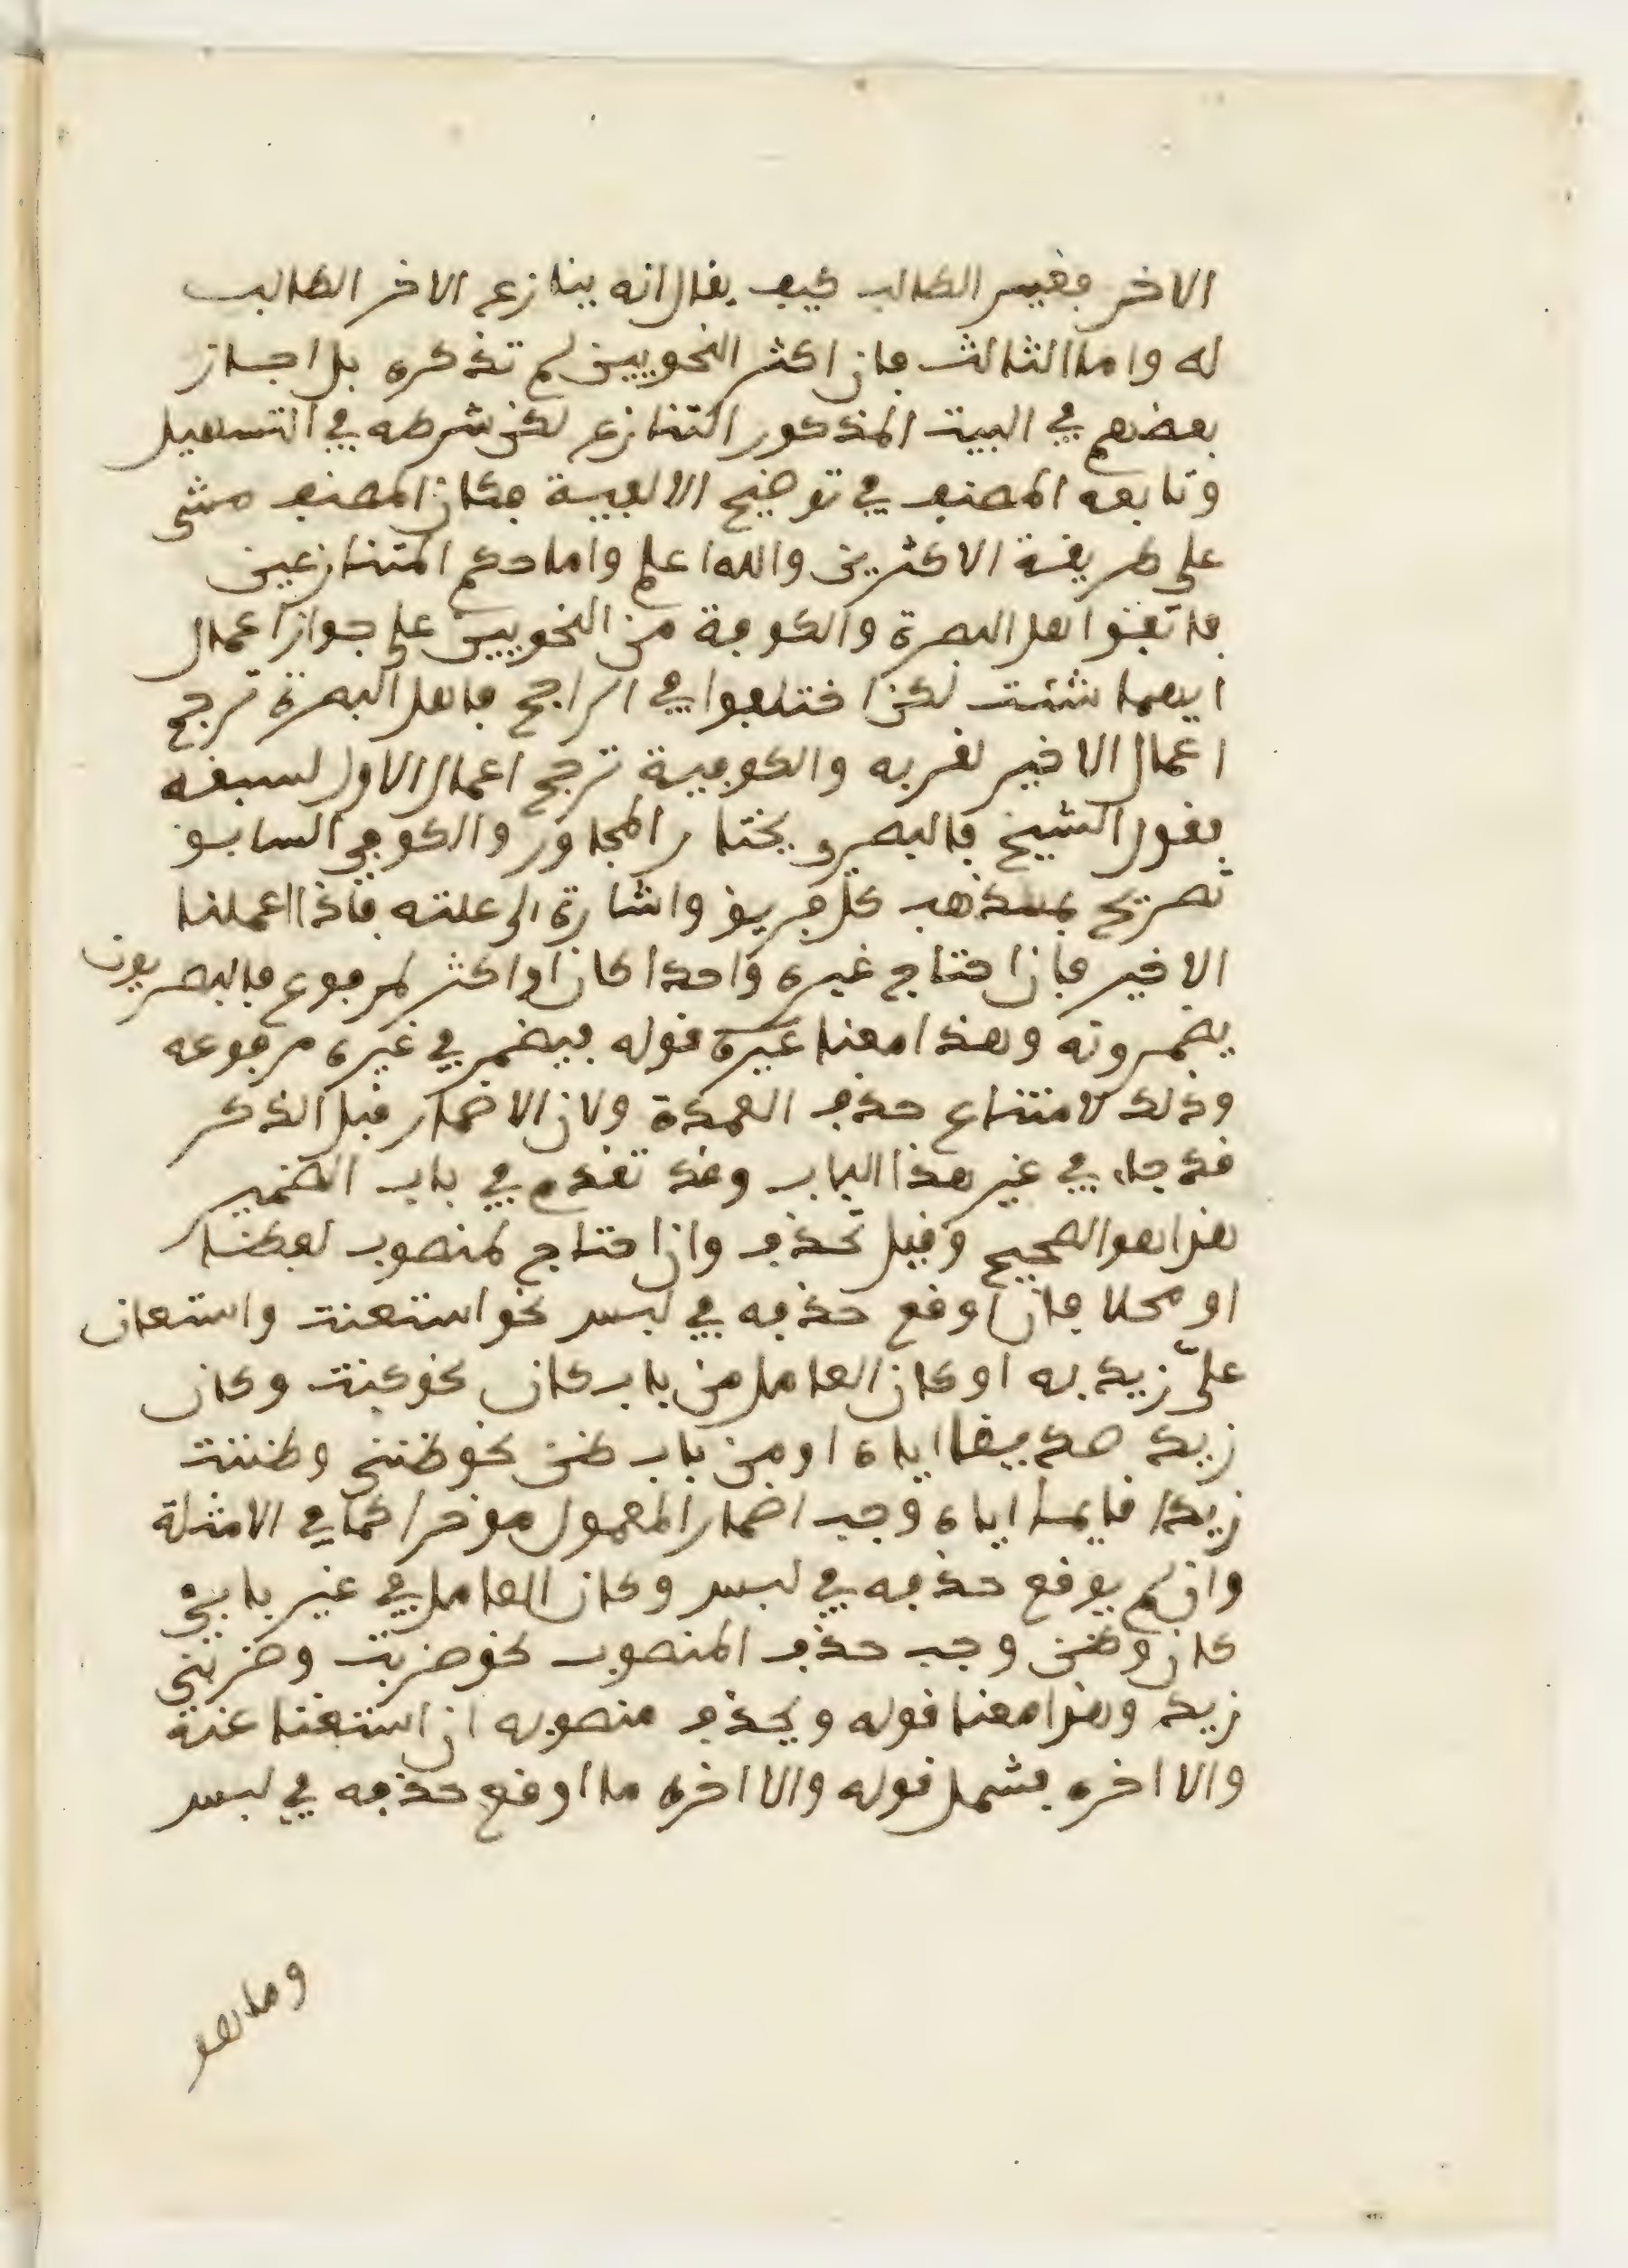 الاخر فغير الطالب كيف يقال انه ينازع الاخر الطالب
له واما الثالث فان اكثر النحويين لم تذكره بل اجاز
بعضهم في البيت المذكور التنازع لكن شرطه في التسهيل
وتابعه المصنف في توضيح الالفية فكان المصنف مشى
على طريقة الاكثرين والله اعلم واما حكم المتنازعين
فاتفق اهل البصرة والكوفة من النحويين على جواز اعمال
ايهما شئت لكن اختلفوا في الراجح فاهل البصرة ترجح
اعمال الاخير لقربه والكوفية ترجح اعمال الاول لسبقه
فقول الشيخ فالبصري يختار المجاور والكوفي السابق
تصريح بمذهب كل فريق واشارة الى علته فاذا اعملنا
الاخير فان احتاج غيره واحدا كان او اكثر لمرفوع فالبصريون
يضمرونه وهذا معنا غيره قوله فيضمر في غيره مرفوعه
وذلك لامتناع حذف العمدة ولان الاضمار قبل الذكر
قد جاء في غير هذا الباب وقد تقدم في باب الضمير
هذا هو الصحيح وقيل تحذف وان احتاج لمنصوب لفظا
او محلا فان اوقع حذفه في لبس نحو استعنت واستعان
عليّ زيد به او كان العامل من باب كان نحو كنت وكان
زيد صديقا اياه او من باب ظن نحو ظنني وظننت
زيدا قايما اياه وجب اضمار المعمول موخرا كما في الامثلة
وان لم يوقع حذفه في لبس وكان العامل في غير بابي
كان وظن وجب حذف المنصوب نحو ضربت وضربني
زيد وهذا معنا قوله ويحذف منصوبه ان استغنا عنه
والا اخره فشمل قوله والا اخره ما اوقع حذفه في لبس
وما هو